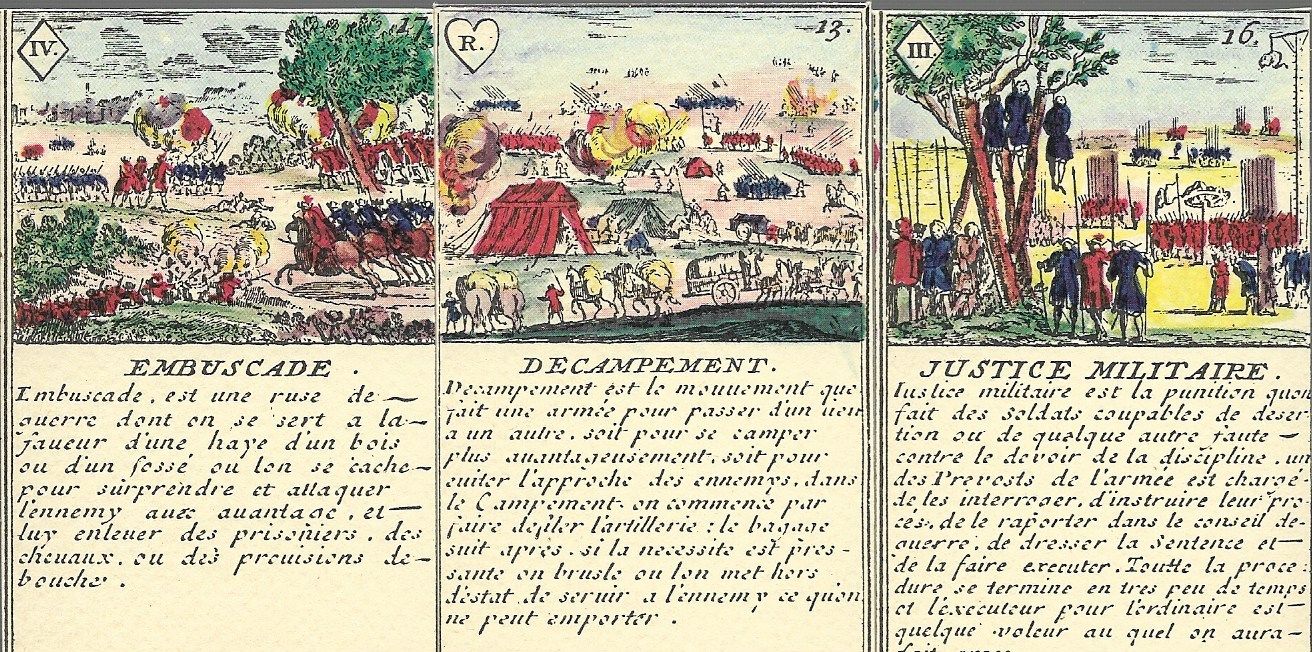 IV.
17.
EMBUSCADE.
Embuscade, est une ruse de
guerre dont on se sert a la
faueur d'une haye d'un bois
ou d'un fossé ou lon se cache
pour surprendre et attaquer
lennemy auec auantage, et
luy enleuer des prisoniers, des
cheuaux, ou des prouisions de
bouche.
R.
13.
DECAMPEMENT.
Decampement est le mouuement que
fait une armée pour passer d'un lieu
a un autre, soit pour se camper
plus auantageusement, soit pour
euiter l'approche des ennemys, dans
le Campement on commence par
faire defiler lartillerie; le bagage
suit apres, si la necessité est pres-
sante on brusle ou lon met hors
déstat de seruir a lennemy ce quon
ne peut emporter.
III.
16.
JUSTICE MILITAIRE.
Iustice militaire est la punition quon
fait des soldats coupables de deser
tion ou de quelque autre faute
contre le devoir de la discipline, un
des Prevosts de l'armée est chargé
de les interroger, d'instruire leur pro
cés, de le raporter dans le conseil de
guerre, de dresser la Sentence et
de la faire executer. Toutte la proce
dure se termine en tres peu de temps
et l'éxecuteur pour l'ordinaire est
quelque voleur au quel on aura
fait grace